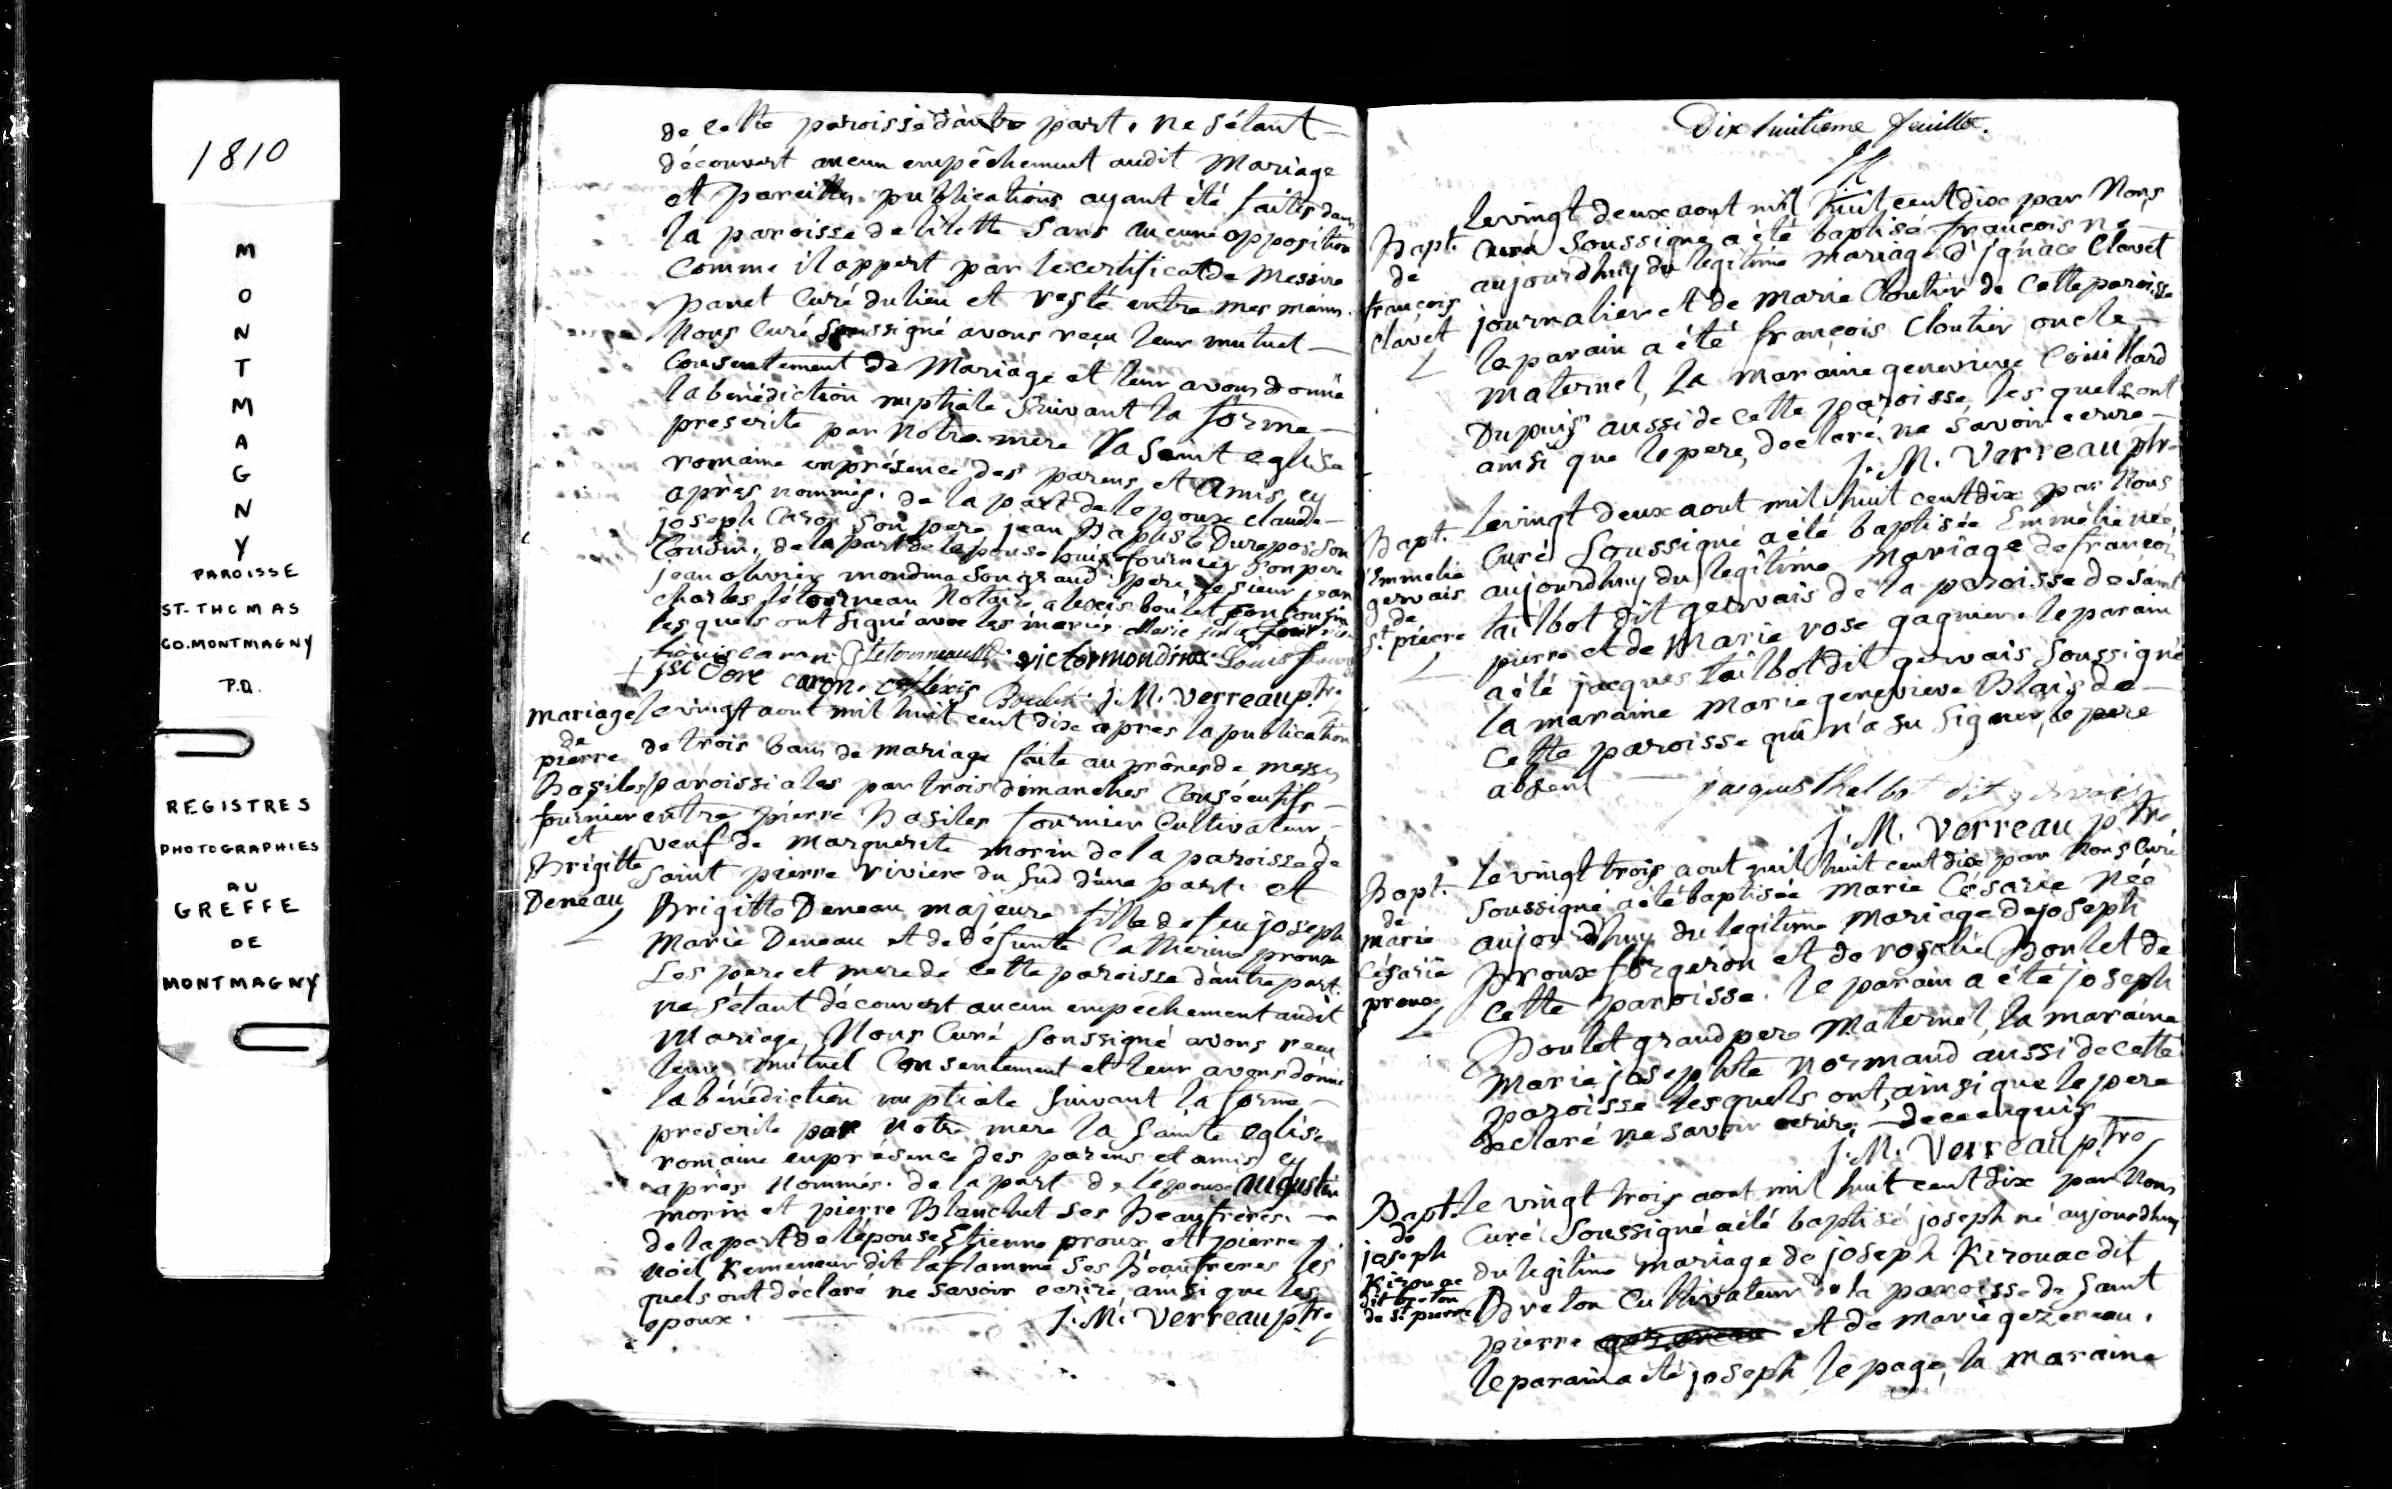 1810
M
O
N
T
M
A
G
N
Y
PAROISSE
ST-THOMAS
CO.MONTMAGNY
P.Q.
REGISTRES
PHOTOGRAPHIES
AU
GREFFE
DE
MONTMAGNY
de cette paroisse d'autre part. ne s'étant
découvert aucun empêchement audit Mariage
et pareilles publications ayant été faites dans
la paroisse de lilette sans aucune opposition
Comme il appert par le certificat de Messire
panet Curé du lieu et resté entre mes mains.
Nous Curé Soussigné avons reçu leur mutuel
Consentement de Mariage et leur avons donné
la bénédiction nuptiale suivant la forme
prescrite par Notre mere la Saint eglise
romaine en présence des parens et amis cy
après nommés. de la part de lepoux claude
joseph Caron son pere jean Baptiste Durepos son
Cousin, de la part de lepouse louis fournier son pere
jean olivier mondina son grand pere, le sieur jean
charles létourneau Notaire, alexis boulet son cousin
lesquels ont signé avec les mariés. Marie
Letourneau victor mondina Louis
caron. Alexis Boulet J. M. Verreau ptre
mariage
de
pierre
Basiles
fournier
et
Brigitte
Deneau
le vingt aout mil huit cent dix apres la publication
de trois bans de mariage faite au prônes de messes
paroissiales par trois dimanches Consécutifs
entre pierre Basiles fournier Cultivateur,
veuf de Marguerite morin de la paroisse de
Saint pierre riviere du Sud d'une part. et
Brigitte Deneau majeure fille de feu joseph
Marie Deneau et de Défunte Catherine proux
Les pere et mere de cette paroisse d'autre part.
ne s'étant découvert aucun empêchement audit
Mariage, Nous Curé Soussigné avons reçu
leur mutuel Consentement et leur avons donné
la bénédiction nuptiale suivant la forme
prescrite par Notre mere la Sainte eglise
romaine en présence des parens et amis cy
après Nommés. de la part de l'époux augustin
morin et pierre Blanchet ses Beaufreres.
de la part de l'épouse Etienne proux et pierre
noël Kemeneur dit laflamme ses Beaufreres les
quels ont déclaré ne savoir ecrire, ainsi que les
epoux. J. M. Verreau ptre
Dix huitieme feuillet.
Bapt.
de
françois
Clavet
le vingt deux aout mil huit cent dix par Nous
Curé Soussigné a été baptisé françois né
aujourdhuy du legitime mariage d'ignace Clavet
journalier et de Marie Cloutier de Cette paroisse
le parain a été françois Cloutier oncle
maternel, La maraine genevieve Couillard
Dupuis aussi de cette paroisse, lesquels ont
ainsi que le pere, declaré ne savoir ecrire
J. M. Verreau ptre
Bapt.
Emmelie
gervais
de
St. pierre
le vingt deux aout mil huit cent dix par Nous
Curé Soussigné a élé baptisée Emmélie née,
aujourdhuy du legitime Mariage de françois
talbot dit gervais de la paroisse de Saint
pierre et de Marie rose gagnier. le parain
a été jacques talbot dit gervais Soussigné
la maraine Marie genevieve Blais de
Cette paroisse qui n'a su Signer, le pere
absent jacques thalbot dit gervais
J. M. Verreau ptre
Bapt.
de
marie
Césarie
proux
Le vingt trois aout mil huit cent dix par Nous Curé
Soussigné a été baptisée Marie Césarie Née
aujourdhuy du legitime Mariage de joseph
proux forgeron et de rosalie Boulet de
Cette paroisse. le parain a été joseph
Boulet grand pere Maternel, la maraine
Marie josephte Normand aussi de cette
paroisse lesquels ont, ainsi que le pere
declaré ne savoir ecrire, de ce enquis
J. M. Verreau ptre
Bapt.
de
joseph
Kirouac
dit breton
de St. pierre
le vingt trois aout mil huit cent dix par Nous
Curé Soussigné a élé baptisé joseph né aujourdhuy
du legitime mariage de joseph Kirouac dit
Breton Cultivateur de la paroisse de Saint
pierre et de Marie gezereau.
le parain a été joseph le page, la maraine